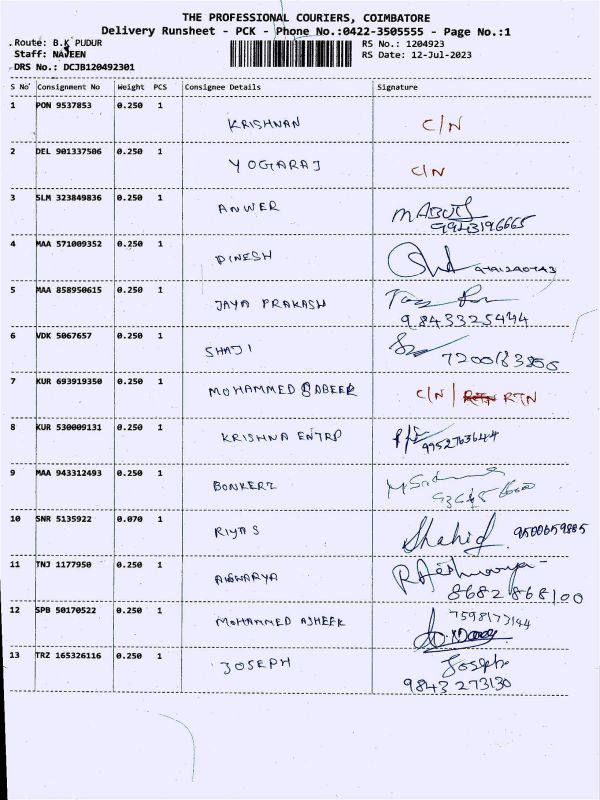 THE PROFESSIONAL COURIERS, COIMBATORE
Delivery Runsheet - PCK - Phone No.:0422-3505555 - Page No.:1
Route: B.K PUDUR
RS No.: 1204923
Staff: NAJEEN
RS Date: 12-Jul-2023
DRS No.: DCJB120492301
S No Consignment No Weight PCS Consignee Details Signature
1 PON 9537853 0.250 1 KRISHNAN C/N
2 DEL 901337506 0.250 1 YOGARAJ C/N
3 SLM 323849836 0.250 1 ANWER
9943196665
4 MAA 571009352 0.250 1 DINESH
5 MAA 858950615 0.250 1 JAYA PRAKASH
9843325444
6 VDK 5067657 0.250 1 SHAJI
7 KUR 693919350 0.250 1 MOHAMMED SABEER C/N | RTN RTN
8 KUR 530009131 0.250 1 KRISHNA ENTRP
9952763644
9 MAA 943312493 0.250 1 BONKERZ
10 SNR 5135922 0.070 1 RIYAS Shahid 9500659885
11 TNJ 1177950 0.250 1 AISWARYA
8682868100
12 SPB 50170522 0.250 1 MOHAMMED ASHEEK 7598173144
13 TRZ 165326116 0.250 1 JOSEPH Joseph
9843 273130